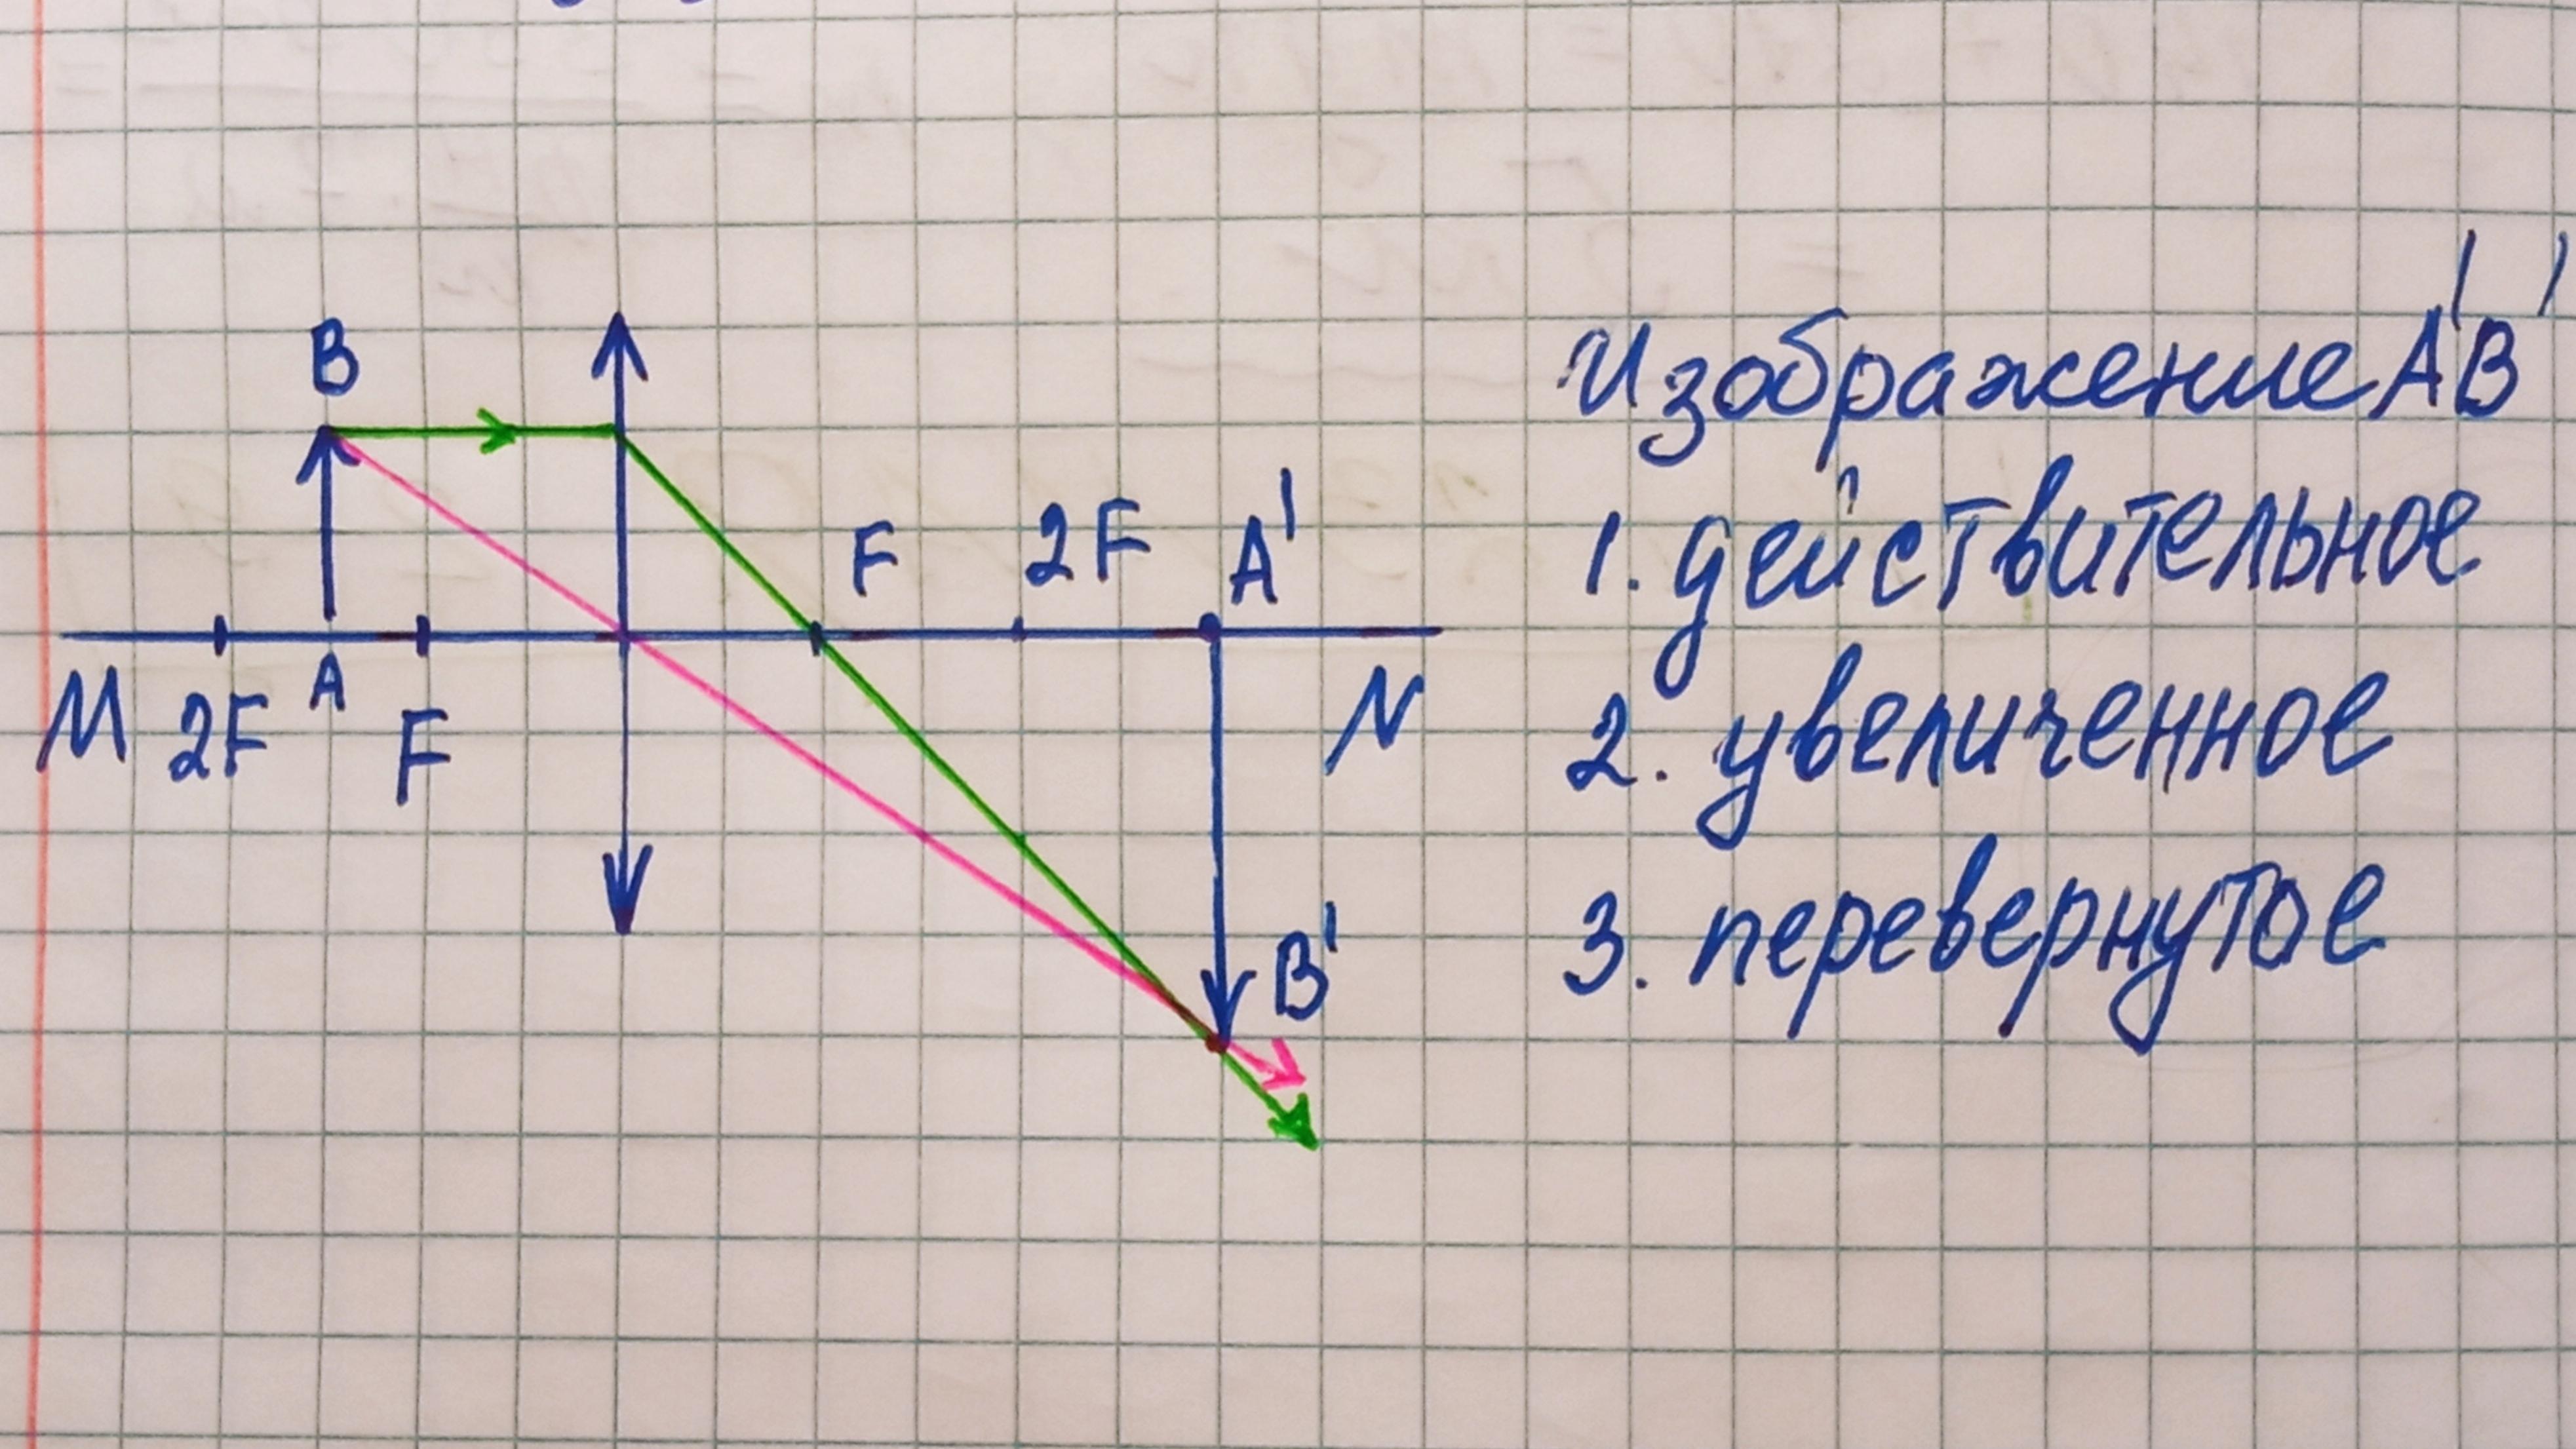 B
F 2F A'
M 2F A F N
B'
Изображение A'B'
1. действительное
2. увеличенное
3. перевернутое